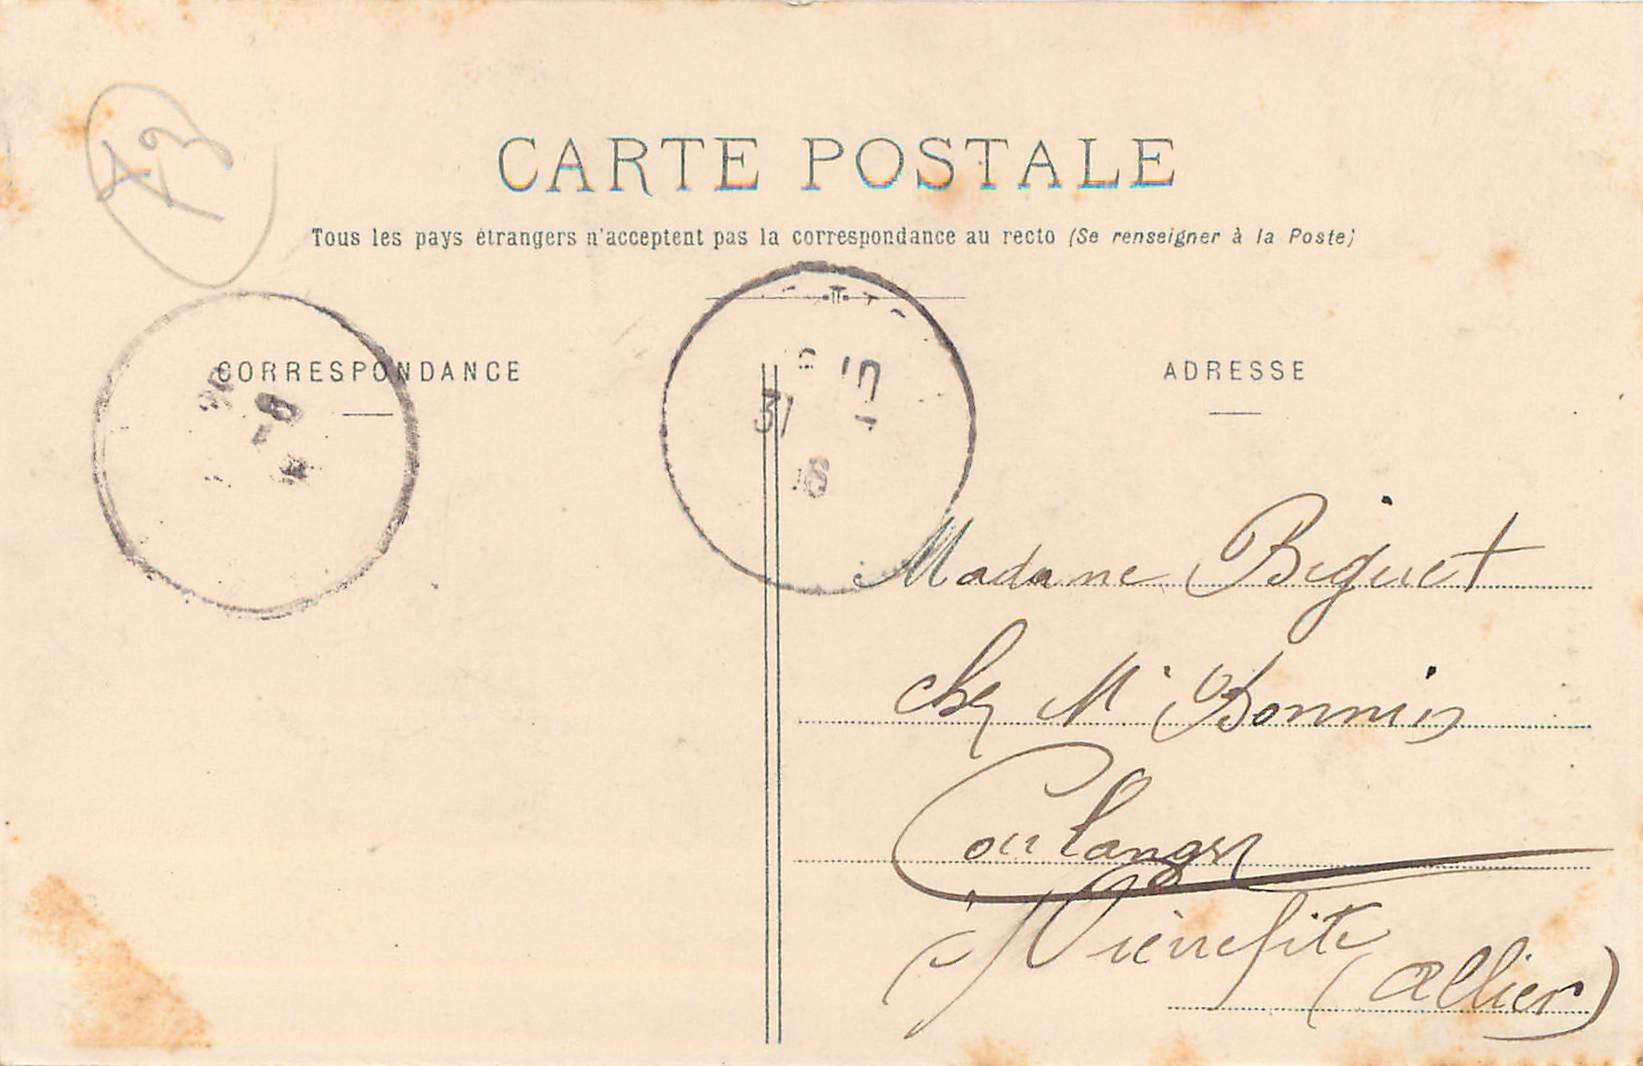 A3
CARTE POSTALE
Tous les pays étrangers n'acceptent pas la correspondance au recto (Se renseigner à la Poste)
CORRESPONDANCE
ADRESSE
31
Madame Biguet
chez Mr Bonnin
Coulanges
Pierrefite
(Allier)